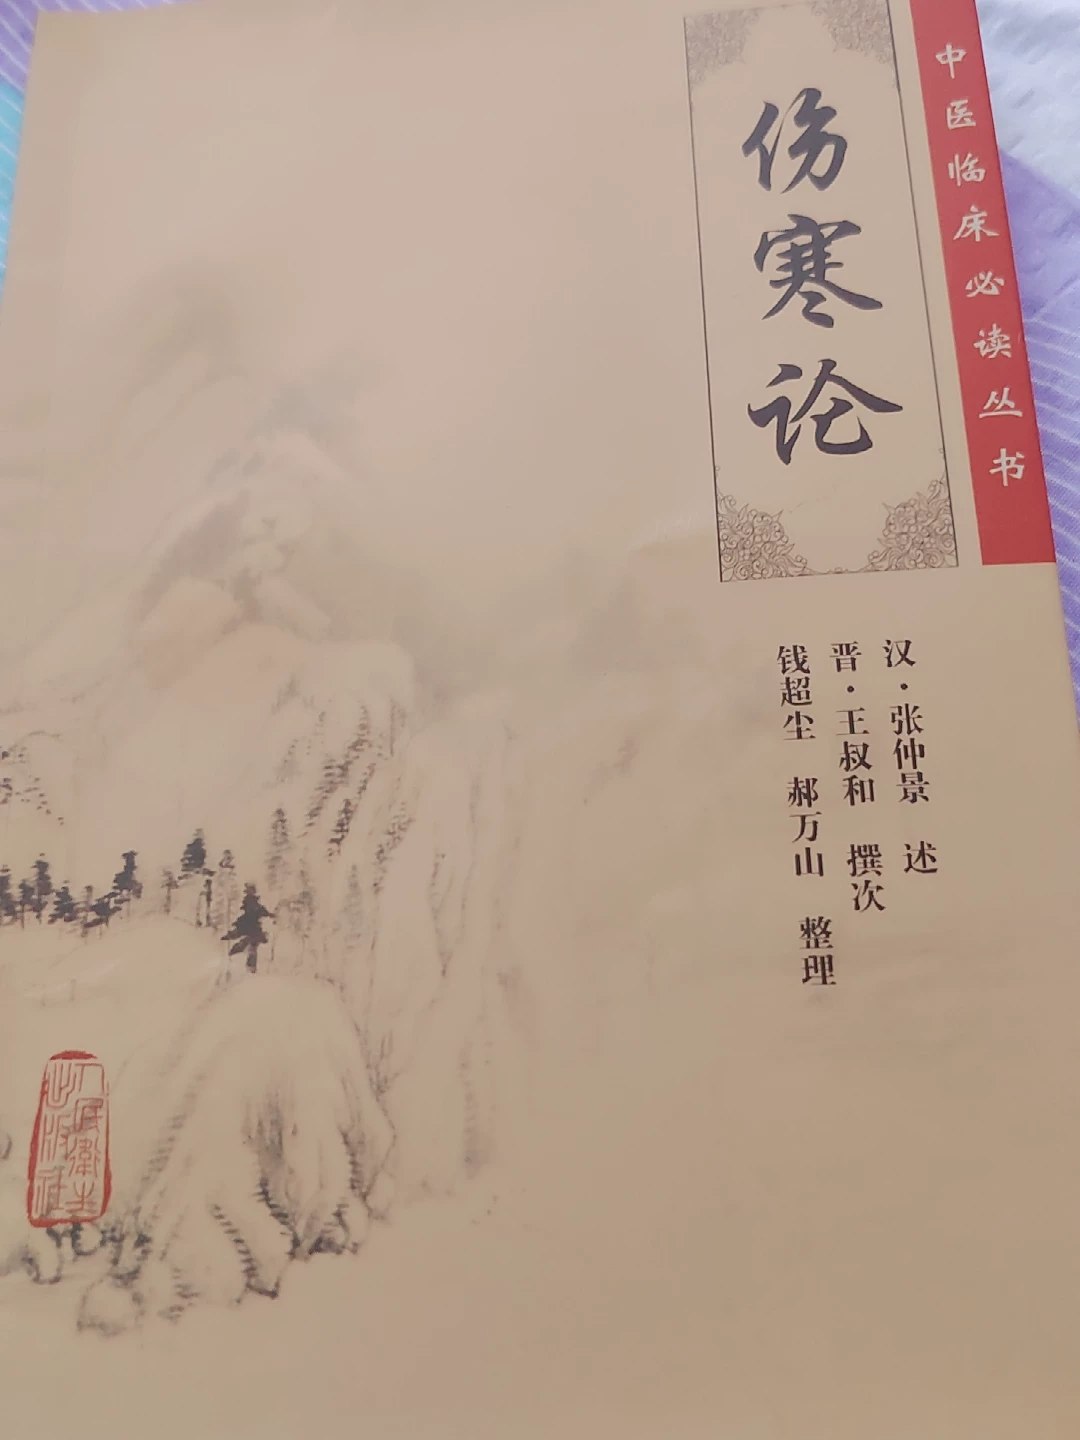 中医临床必读丛书
伤寒论
汉·张仲景 述
晋·王叔和 撰次
钱超尘 郝万山 整理
人民衛生
出版社